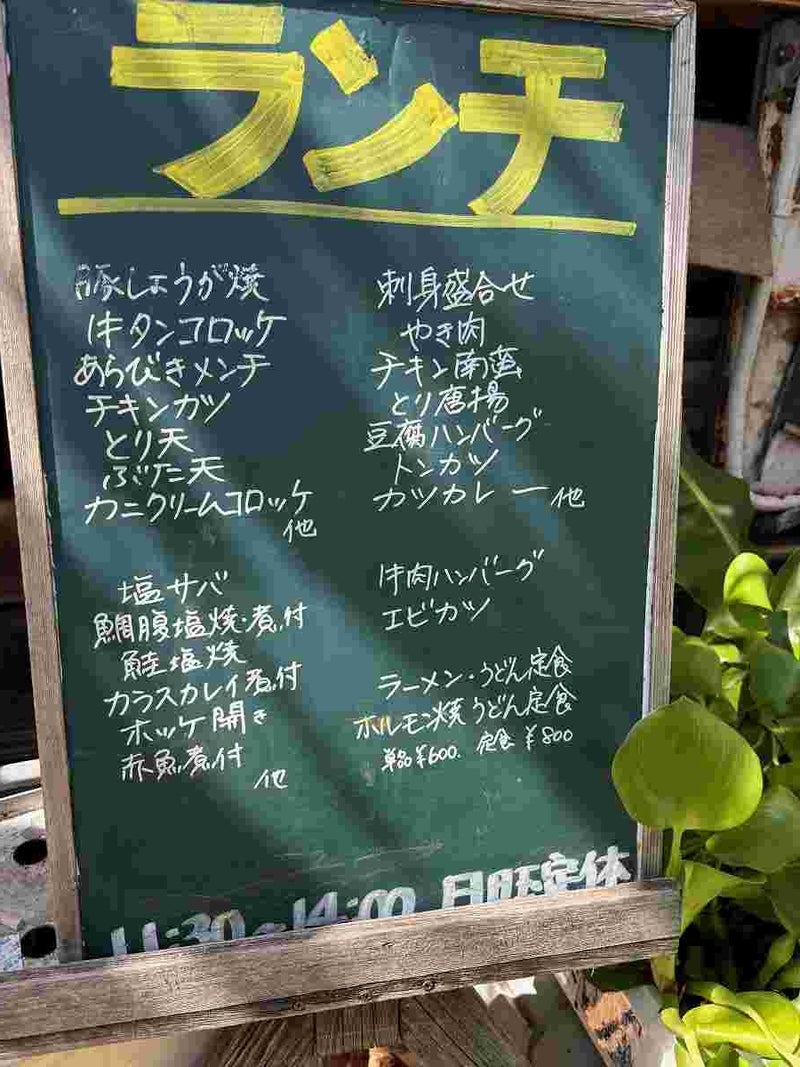 ランチ
豚しょうが焼
牛タンコロッケ
あらびきメンチ
チキンカツ
とり天
ぶた天
カニクリームコロッケ
他
塩サバ
鯛腹塩焼・煮付
鮭塩焼
カラスカレイ煮付
ホッケ開き
赤魚煮付
他
刺身盛合せ
やき肉
チキン南蛮
とり唐揚
豆腐ハンバーグ
トンカツ
カツカレー他
牛肉ハンバーグ
エビカツ
ラーメン・うどん定食
ホルモン焼うどん定食
単品¥600. 定食¥800
11:30~14:00 日旺定休